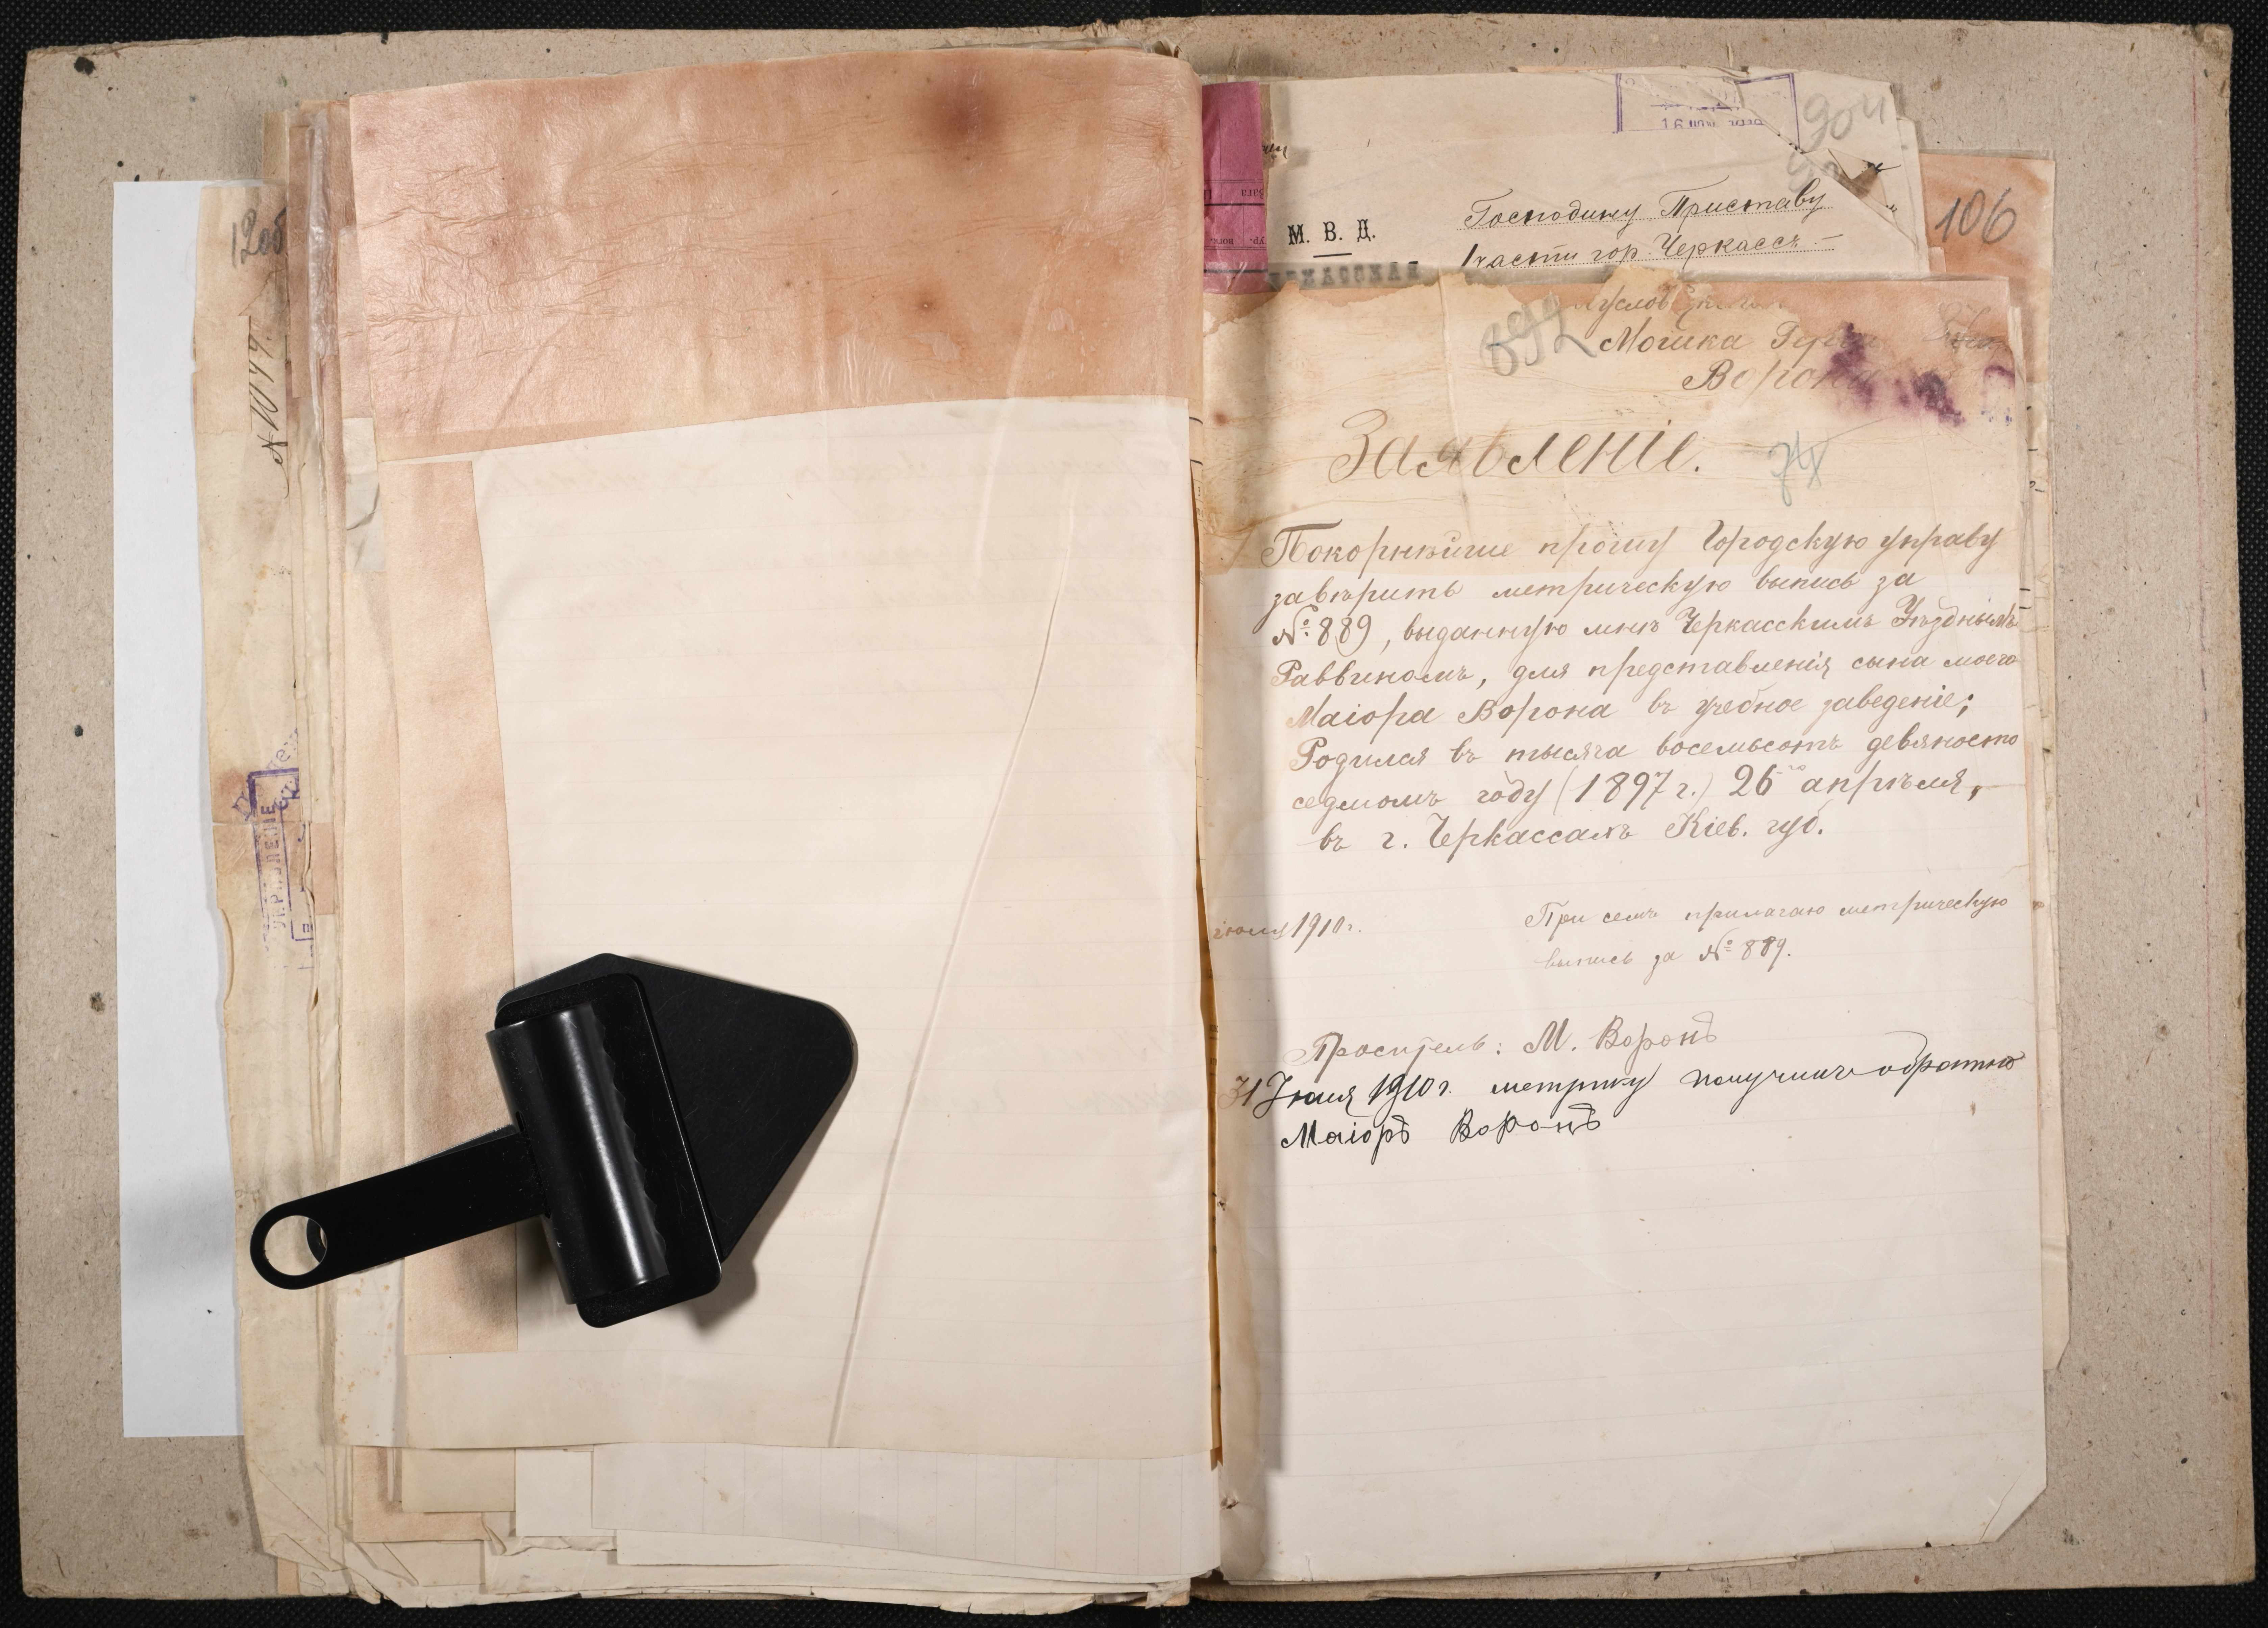 120об
№1044.
УПРАВЛЕНІЕ
904
106
М. В. Д.
Господину Приставу
1 части гор. Черкассъ
892
Мошка
Ворона
Заявленіе.
Покорнѣйше прошу Городскую управу
завѣрить метрическую выпись за
№ 889, выданную мнѣ Черкасскимъ Уѣзднымъ
Раввиномъ, для представленія сына моего
Маіора Ворона въ учебное заведеніе;
Родился въ тысяча восемьсотъ девяносто
седмомъ году (1897 г.) 26го апрѣля,
въ г. Черкассахъ Кіев. губ.
1910 г.
При семъ прилагаю метрическую
выпись за № 889.
Проситель: М. Воронъ
31 Іюля 1910 г. метрику получилъ обратно
Маіоръ Воронъ